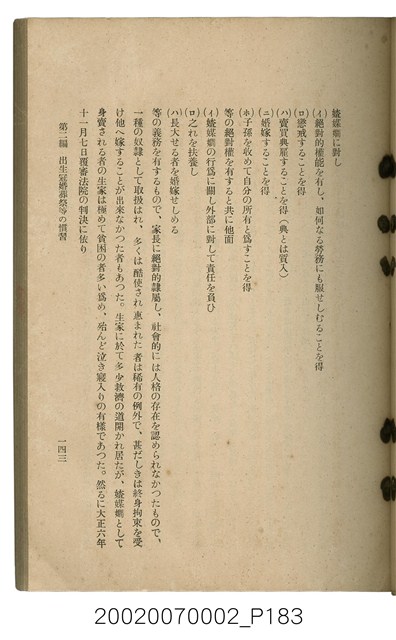 媿媒嫺に對し
(イ)絕對的權能を有し、如何なる勞務にも服せしむることを得
(ロ)懲戒することを得
(ハ)賣買典雇することを得(典とは質入)
(ニ)婚嫁することを得
(ホ)子孫を收めて自分の所有と爲すことを得
等の絕對權を有すると共に他面
(イ)媿媒嫺の行爲に關し外部に對して責任を負ひ
(ロ)之れを扶養し
(ハ)長大せる者を婚嫁せしめる
等の義務を有するもので、家長に絕對的隷屬し、社會的には人格の存在を認められなかつたもので、
一種の奴隷として取扱はれ、多くは酷使され惠まれた者は稀有の例外で、甚だしきは終身拘束を受
け他へ嫁することが出來なかつた者もあつた。生家に於て多少救濟の道開かれ居たが、媿媒嫺として
身賣される者の生家は極めて貧困の者多い爲め、殆んど泣き寢入りの有樣であつた。然るに大正六年
十一月七日覆審法院の判決に依り
第二編 出生冠婚葬祭等の慣習
一四三
20020070002_P183